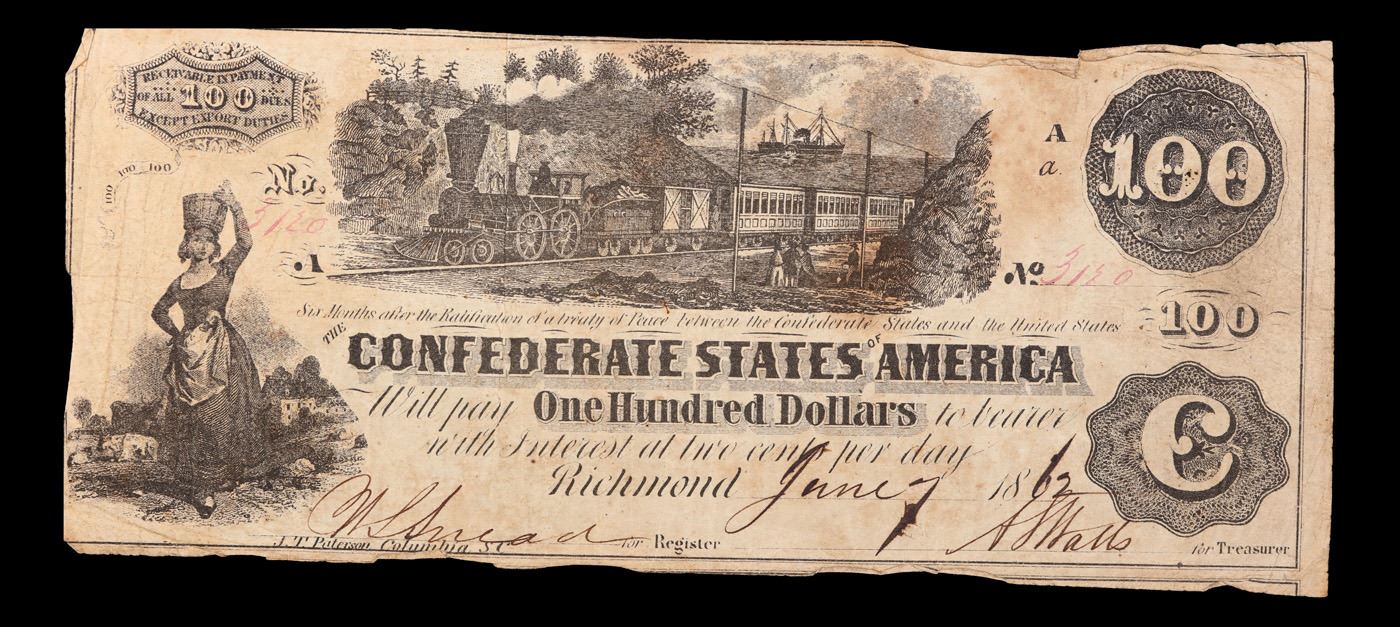 RECEIVABLE IN PAYMENT
OF ALL 100 DUES
EXCEPT EXPORT DUTIES
100 100 100
No.
3120
A
a.
100
No 3120
100
Six Months after the Ratification of a treaty of Peace between the Confederate States and the United States
THE CONFEDERATE STATES OF AMERICA
Will pay One Hundred Dollars to bearer
with Interest at two cents per day
Richmond June 7 1862
C
J.T. Paterson Columbia S.C
for Register
for Treasurer